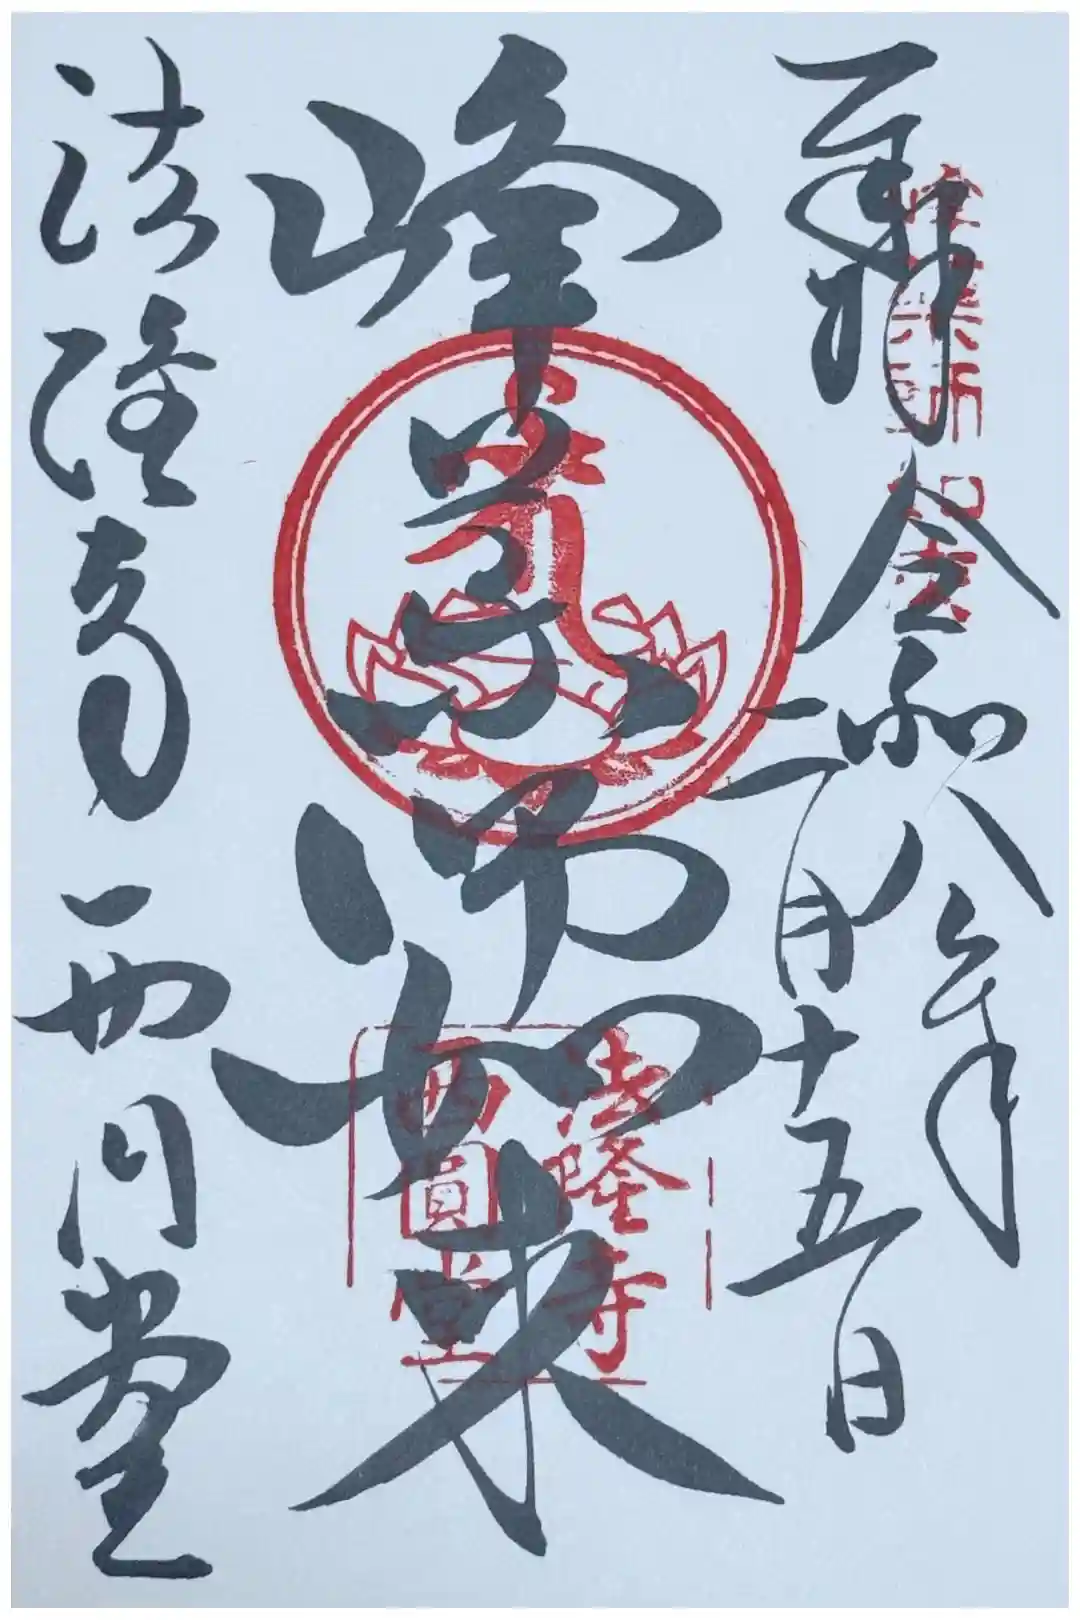 奉拝
令和八年
二月十五日
峰薬師如来
法隆寺
西圓堂
法隆寺 西円堂